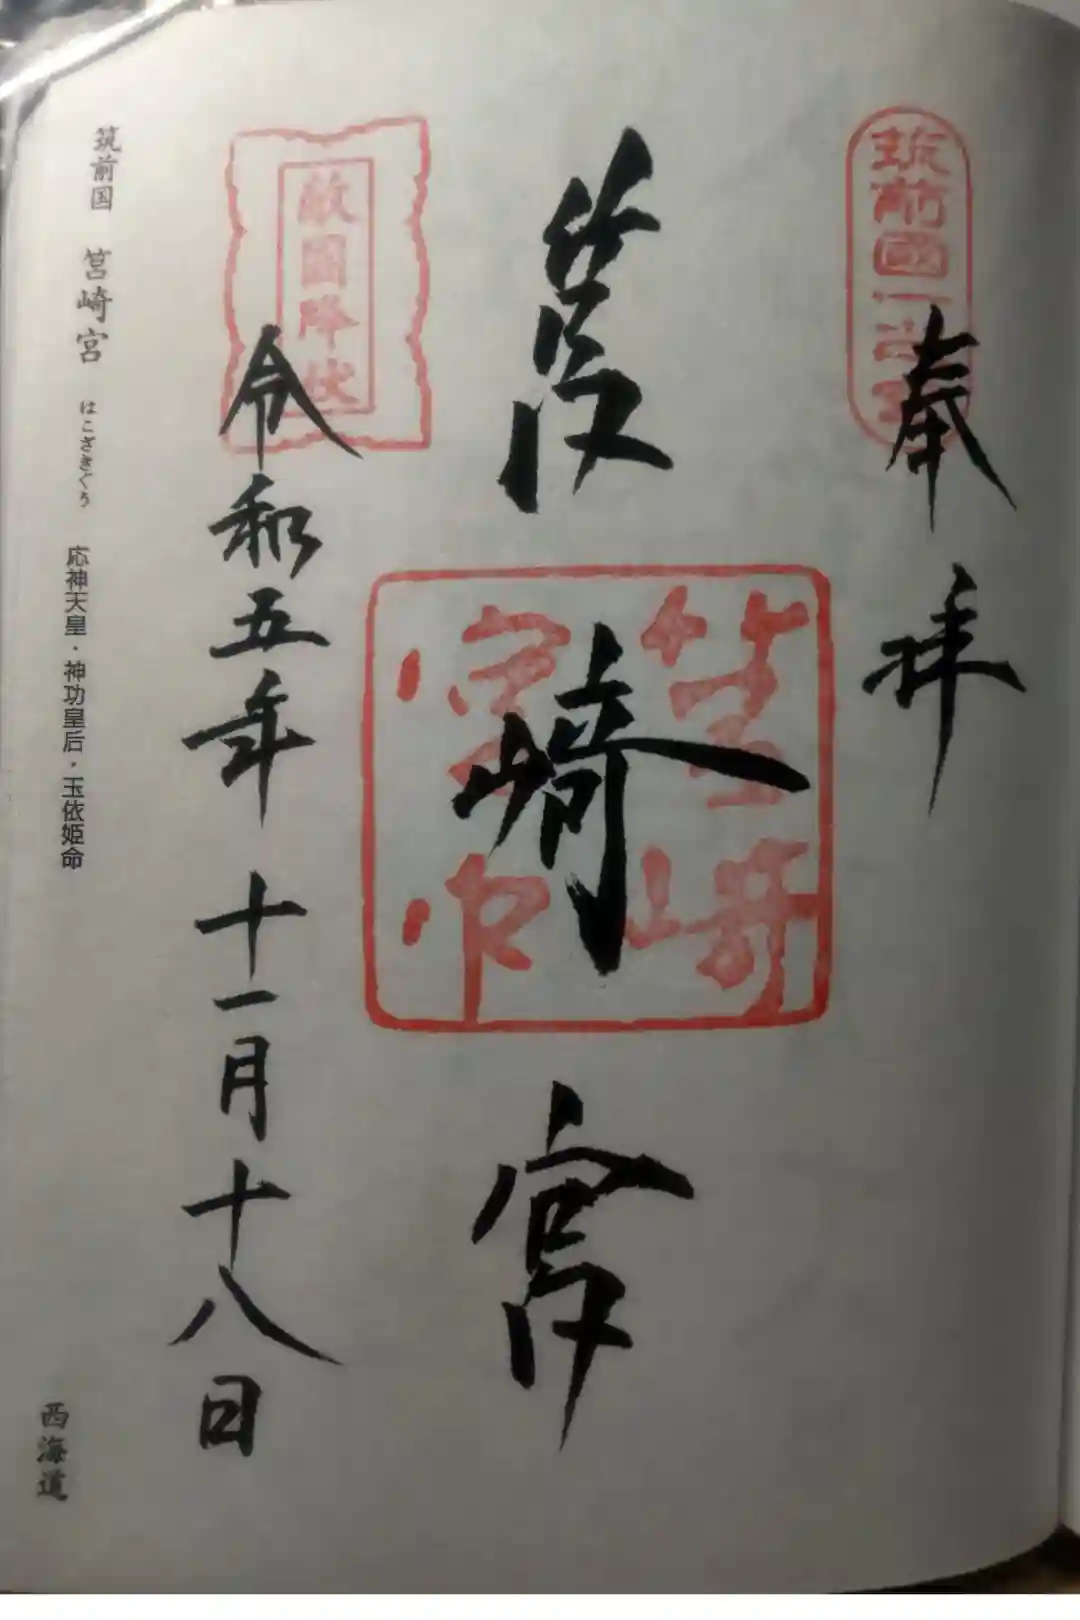 筑前國一之宮
奉拝
筥崎宮
筥崎宮印
敵國降伏
令和五年十一月十八日
筑前国 筥崎宮 はこざきぐう 応神天皇・神功皇后・玉依姫命
西海道